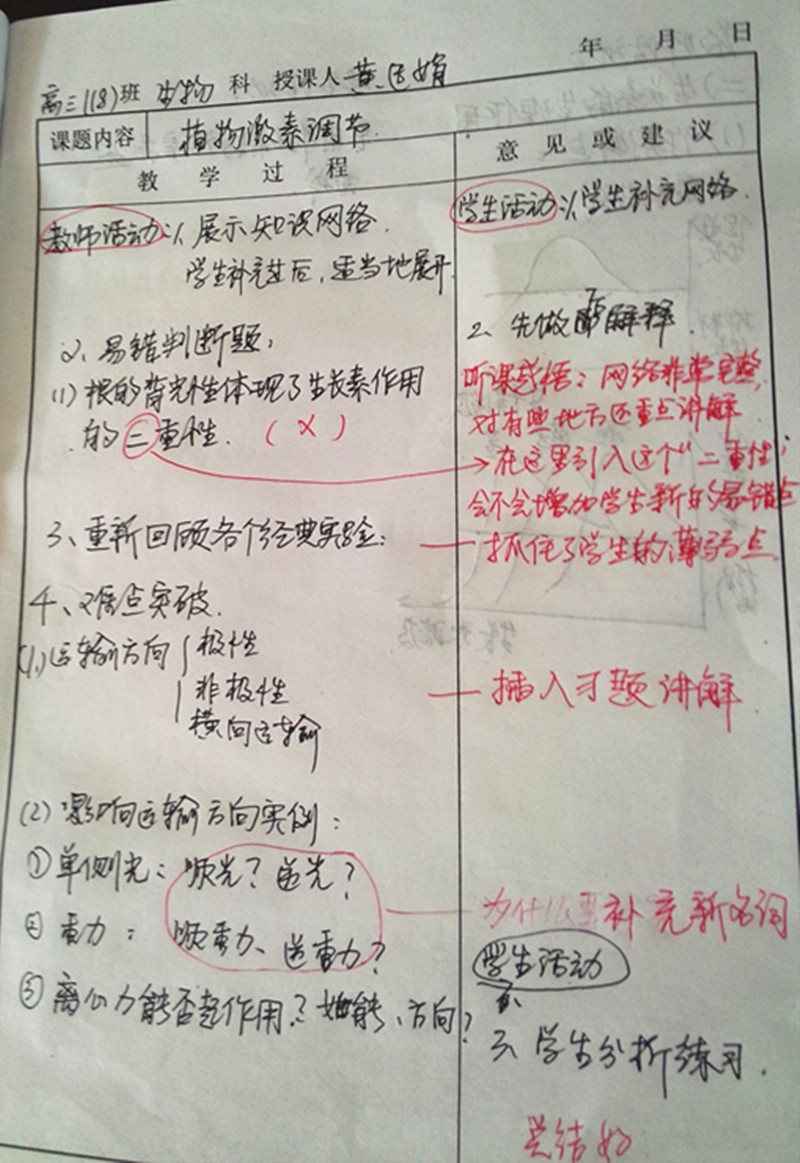 年 月 日
高三(18)班 生物 科 授课人 黄
课题内容 植物激素调节
教 学 过 程
意 见 或 建 议
教师活动:1、展示知识网络.
学生补充过后,适当地展开
学生活动:1、学生补充网络.
2、易错判断题,
(1)根的背光性体现了生长素作用
的二重性. (×)
2、先做再解释.
听课感悟:网络非常完整,
对有些地方还重点讲解
在这里引入这个"二重性,
会不会增加学生新的易错点
3、重新回顾各个经典实验:
抓住了学生的薄弱点
4、难点突破.
(1)运输方向 极性
非极性
横向运输
插入习题讲解
(2)影响运输方向实例:
①单侧光:顺光?逆光?
②重力:顺重力、逆重力?
为什么要补充新名词
学生活动
③离心力能否起作用?如能、方向?
3、学生分析练习.
总结好